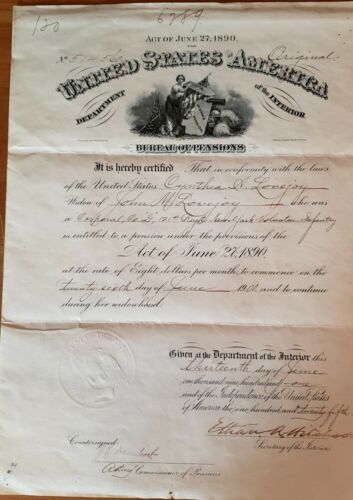 130
6789
ACT OF JUNE 27, 1890.
Original.
UNITED STATES OF AMERICA
DEPARTMENT OF THE INTERIOR
BUREAU OF PENSIONS
It is hereby certified That in conformity with the laws
of the United States Cynthia A. Lovejoy
Widow of John M. Lovejoy who was
a Corporal Co D, 121st Regt New York Volunteer Infantry
is entitled to a pension under the provisions of the
Act of June 27, 1890.
at the rate of Eight dollars per month to commence on the
twenty sixth day of June 1900. and to continue
during her widowhood.
Given at the Department of the Interior this
thirteenth day of June
one thousand nine hundred and one
and of the Independence of the United States
of America, the one hundred and twenty fifth
Secretary of the Interior.
Countersigned,
Acting Commissioner of Pensions